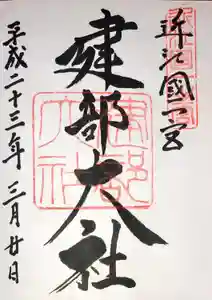 近江國一宮
建部大社
平成二十三年三月廿日